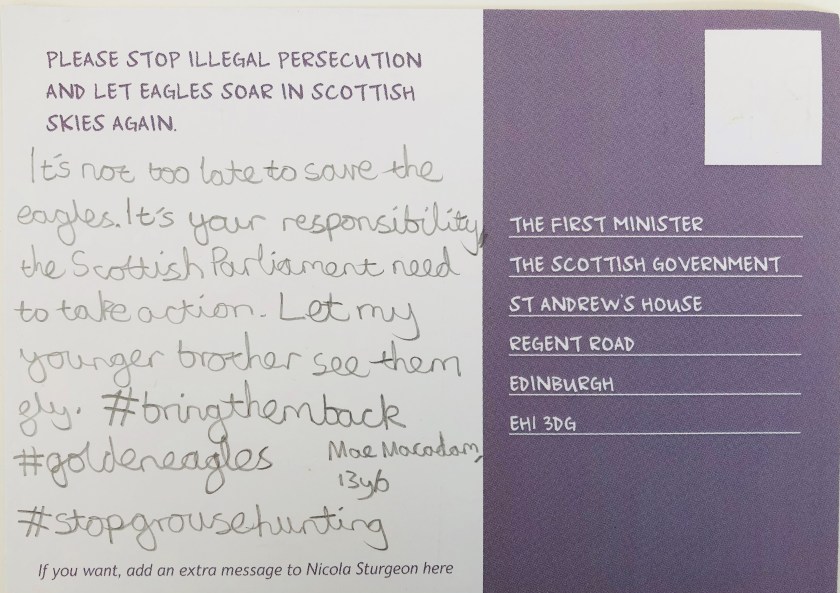 PLEASE STOP ILLEGAL PERSECUTION
AND LET EAGLES SOAR IN SCOTTISH
SKIES AGAIN.
It's not too late to save the
eagles. It's your responsibility,
the Scottish Parliament need
to take action. Let my
younger brother see them
fly. #bringthemback
#goldeneagles
Mae Macadam,
13yo
#stopgrousehunting
If you want, add an extra message to Nicola Sturgeon here
THE FIRST MINISTER
THE SCOTTISH GOVERNMENT
ST ANDREW'S HOUSE
REGENT ROAD
EDINBURGH
EH1 3DG